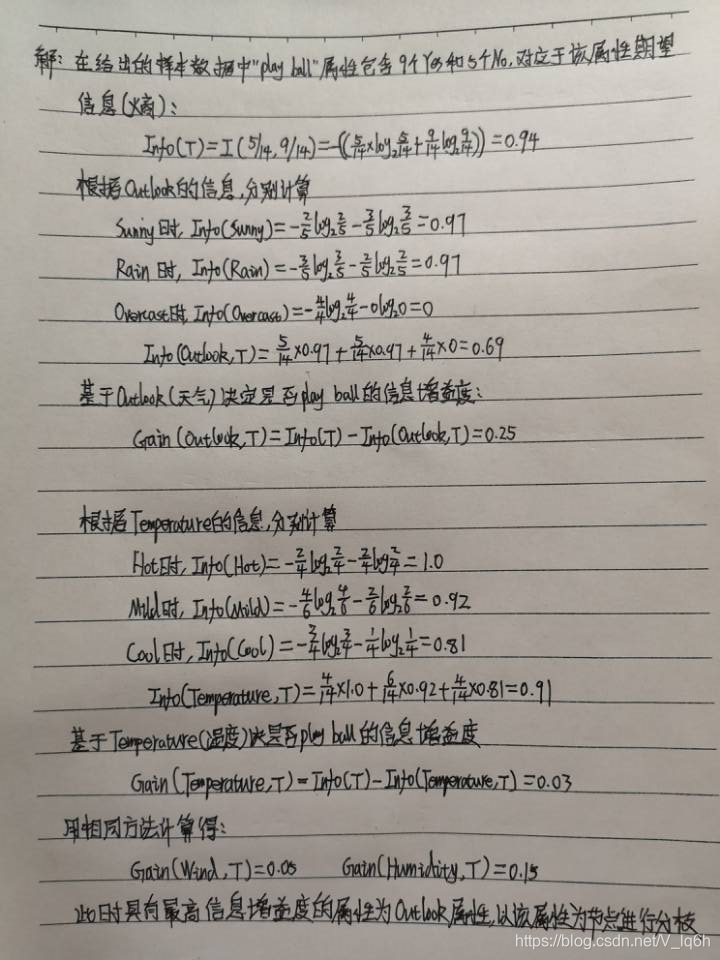 解: 在给出的样本数据中"play ball"属性包含9个Yes和5个No,对应于该属性期望
信息(熵):
Info(T)=I(5/14,9/14)=-((5/14×log₂5/14+9/14log₂9/14))=0.94
根据Outlook的信息,分别计算
Sunny时, Info(Sunny)=-2/5log₂2/5-3/5log₂3/5=0.97
Rain时, Info(Rain)=-3/5log₂3/5-2/5log₂2/5=0.97
Overcast时, Info(Overcast)=-4/4log₂4/4-0log₂0=0
Info(Outlook,T)=5/14×0.97+5/14×0.97+4/14×0=0.69
基于Outlook(天气)决定是否play ball的信息增益度:
Gain(Outlook,T)=Info(T)-Info(Outlook,T)=0.25
根据Temperature的信息,分别计算
Hot时, Info(Hot)=-2/4log₂2/4-2/4log2/4=1.0
Mild时, Info(Mild)=-4/6log₂4/6-2/6log₂2/6=0.92
Cool时, Info(Cool)=-3/4log₂3/4-1/4log₂1/4=0.81
Info(Temperature,T)=4/14×1.0+6/14×0.92+4/14×0.81=0.91
基于Temperature(湿度)决是否play ball的信息增益度
Gain(Temperature,T)=Info(T)-Info(Temperature,T)=0.03
用相同方法计算得:
Gain(Wind,T)=0.05 Gain(Humidity,T)=0.15
此时具有最高信息增益度的属性为Outlook属性,以该属性为节点进行分枝
https://blog.csdn.net/V_lq6h